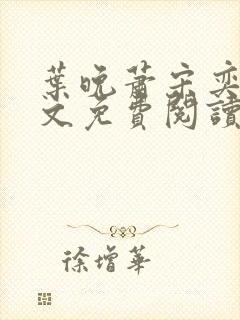 葉晚蕭宋奕
文免費閱讀
徐增華